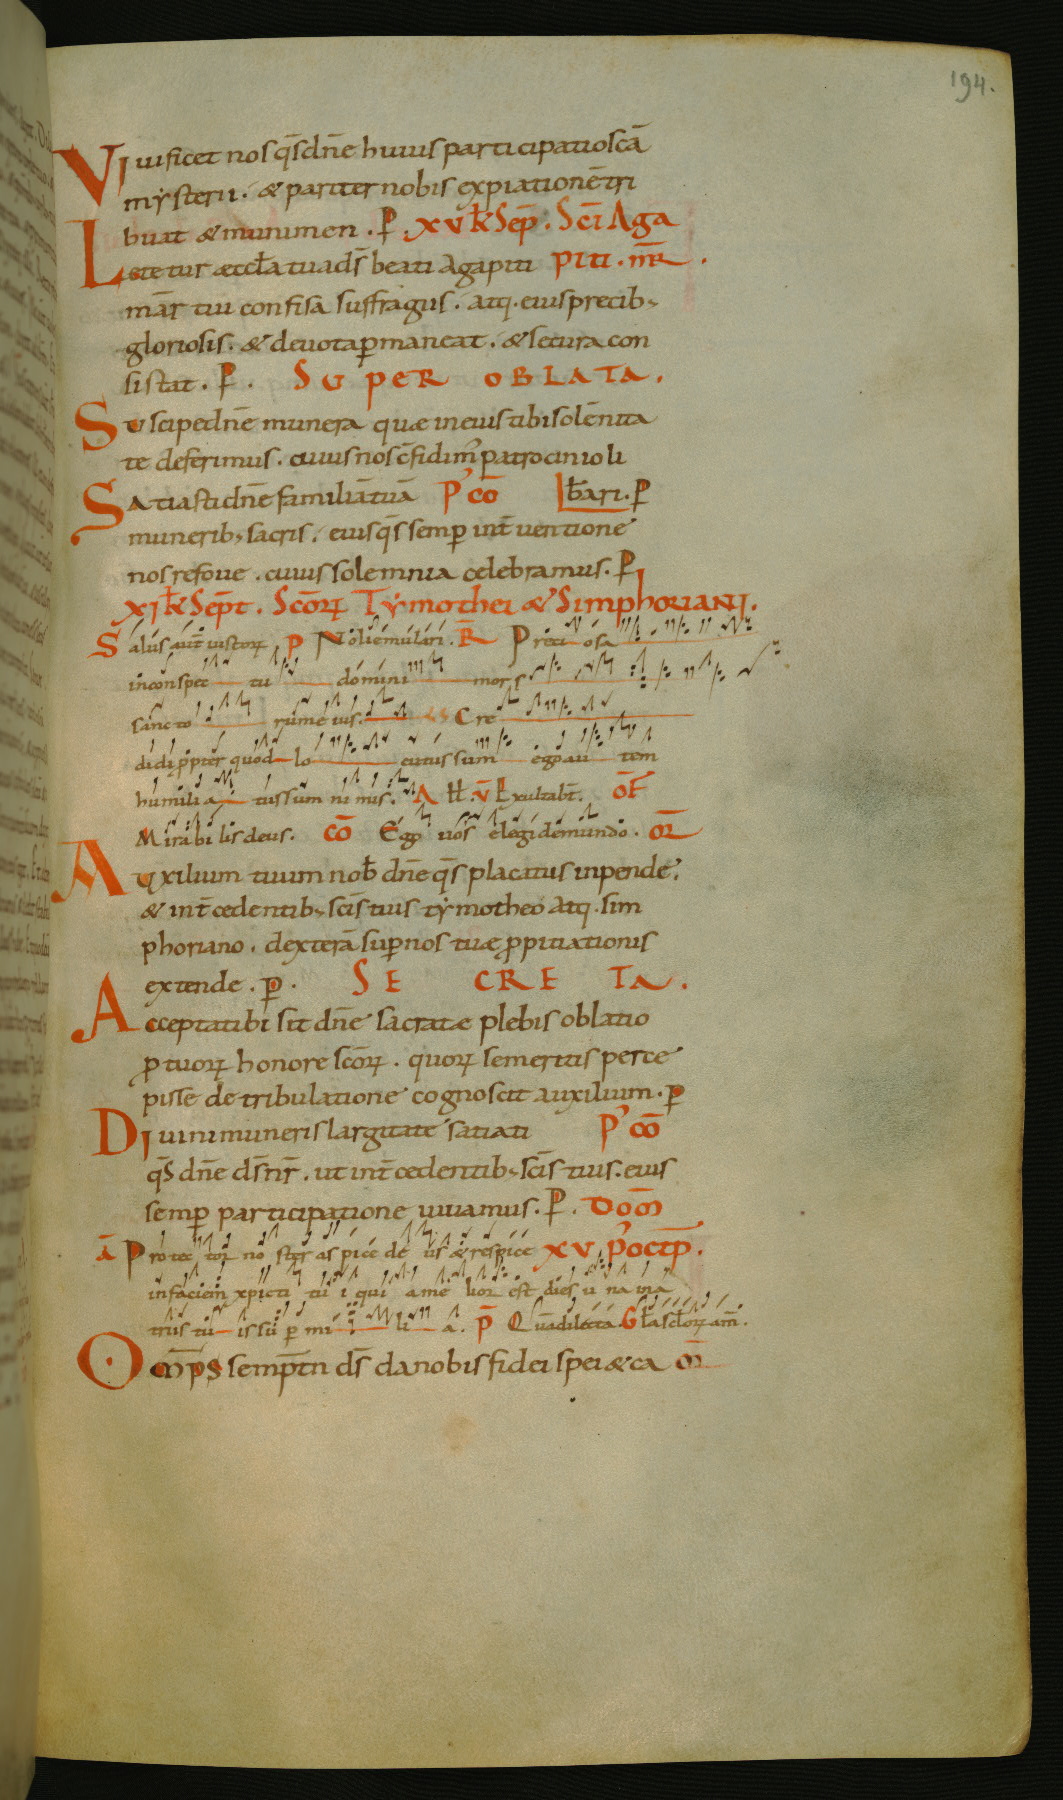 194.
VI uificet nos qs̄ dn̄e huius participatio scā
mysterii. & pariter nobis expiationē tri
buat & munimen. P. XV kł Sep̄. Sc̄i Aga
Letetur aeccła tua d̄s beati Agapiti piti. mr̄.
mār tiri confisa suffragiis. atq. eius precib;
gloriosis. & deuota p̄maneat. & secura con
sistat. P. SUPER OBLATA.
Suscipe dn̄e munera quae in eius tibi solēnita
te deferimus. cuius nos c̄fidim' patrocinio li
Satiasti dn̄e familiā tuā P' cō b̄ari. P
munerib; sacris. eius qs̄ semp̄ int̄uentione
nos refoue. cuius solemnia celebramus. P
XI kł Sept̄. Scōrꝝ Tymothei & Simphoriani.
Salus aut̄ iustorꝝ P Noli emulari. R̄ Preti osa
in conspec tu domini mors
sancto rum eius. Cre
didi p̄pter quod lo cutus sum ego au tem
humili a tus sum nimis. A ll. v̄ Exultab̄t. OF̄
Mirabilis deus. CŌ Ego uos elegi de mundo. OR̄
Auxilium tuum nob̄ dn̄e qs̄ placatus inpende.
& int̄cedentib; sc̄is tuis tymotheo atq. sim
phoriano. dexterā sup̄ nos tuae p̄pitiationis
extende. p. SECRETA.
Accepta tibi sit dn̄e sacratae plebis oblatio
p̄ tuorꝝ honore scōrꝝ. quorꝝ se meritis perce
pisse de tribulatione cognoscit auxilium. p
DI uini muneris largitate satiati P' cō
qs̄ dn̄e d̄s nr̄. ut int̄cedentib; sc̄is tuis. eius
semp̄ participatione uiuamus. P. Dom̄
ā Protec tor no ster aspice de us & respice XV p' oct p̄.
in faciem xpicti tui i qui a me lior est dies u na ina
triis tu is su p mi li a. p̄ Quā dilecta. G
Om̄ps semp̄tn d̄s da nobis fidei spei & ca